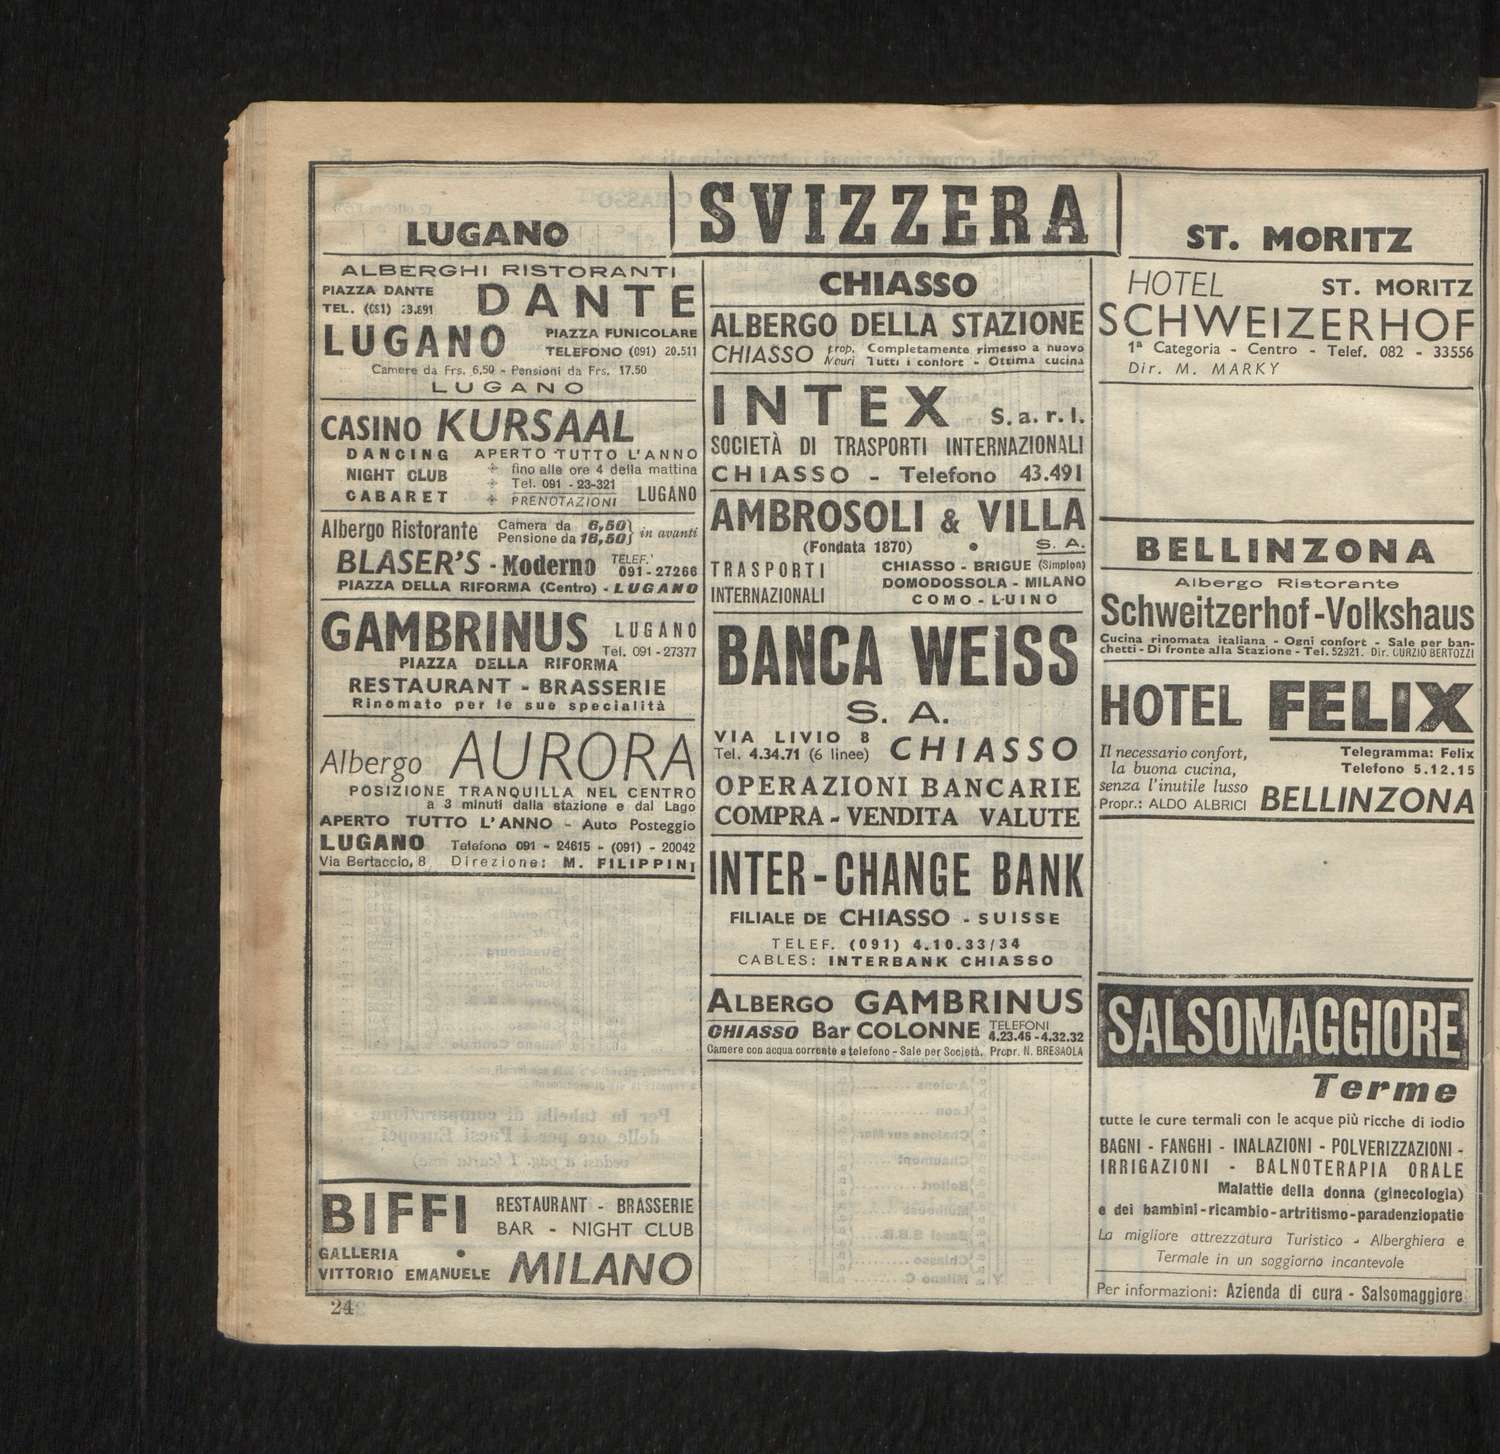 SVIZZERA
LUGANO
ALBERGHI RISTORANTI
PIAZZA DANTE
DANTE
LUGANO
PIAZZA FUNICOLARE
TELEFONO (091) 20.511
Camere da Frs. 6,50 - Pensioni da Frs. 17.50
LUGANO
CASINO KURSAAL
DANCING
NIGHT CLUB
CABARET
APERTO TUTTO L'ANNO
fino alle ore 4 della mattina
Tel. 091 - 23-321
PRENOTAZIONI
LUGANO
Albergo Ristorante
Camera da 6,50
Pensione da 18,50
in avanti
BLASER'S - Moderno
TELEF.
091 - 27266
PIAZZA DELLA RIFORMA (Centro) - LUGANO
GAMBRINUS
LUGANO
Tel. 091 - 27377
PIAZZA DELLA RIFORMA
RESTAURANT - BRASSERIE
Rinomato per le sue specialità
Albergo AURORA
POSIZIONE TRANQUILLA NEL CENTRO
a 3 minuti dalla stazione e dal Lago
APERTO TUTTO L'ANNO - Auto Posteggio
LUGANO Telefono 091 - 24615 - (091) - 20042
Via Bertaccio, 8 Direzione: M. FILIPPINI
BIFFI
RESTAURANT - BRASSERIE
BAR - NIGHT CLUB
GALLERIA
VITTORIO EMANUELE
MILANO
24
CHIASSO
ALBERGO DELLA STAZIONE
CHIASSO
prop. Completamente rimesso a nuovo
Nouri Tutti i confort - Ottima cucina
INTEX S.a.r.l.
SOCIETÀ DI TRASPORTI INTERNAZIONALI
CHIASSO - Telefono 43.491
AMBROSOLI & VILLA
(Fondata 1870) • S. A.
TRASPORTI
INTERNAZIONALI
CHIASSO - BRIGUE (Simplon)
DOMODOSSOLA - MILANO
COMO - LUINO
BANCA WEISS
S. A.
VIA LIVIO 8
Tel. 4.34.71 (6 linee)
CHIASSO
OPERAZIONI BANCARIE
COMPRA - VENDITA VALUTE
INTER-CHANGE BANK
FILIALE DE CHIASSO - SUISSE
TELEF. (091) 4.10.33/34
CABLES: INTERBANK CHIASSO
ALBERGO GAMBRINUS
CHIASSO Bar COLONNE
TELEFONI
4.23.46 - 4.32.32
Camere con acqua corrente e telefono - Sale per Società. Propr. N. BRESAOLA
ST. MORITZ
HOTEL ST. MORITZ
SCHWEIZERHOF
1ª Categoria - Centro - Telef. 082 - 33556
Dir. M. MARKY
BELLINZONA
Albergo Ristorante
Schweitzerhof-Volkshaus
Cucina rinomata italiana - Ogni confort - Sale per ban-
chetti - Di fronte alla Stazione - Tel. 52921. Dir. CURZIO BERTOZZI
HOTEL FELIX
Il necessario confort,
la buona cucina,
senza l'inutile lusso
Propr.: ALDO ALBRICI
Telegramma: Felix
Telefono 5.12.15
BELLINZONA
SALSOMAGGIORE
Terme
tutte le cure termali con le acque più ricche di iodio
BAGNI - FANGHI - INALAZIONI - POLVERIZZAZIONI -
IRRIGAZIONI - BALNOTERAPIA ORALE
Malattie della donna (ginecologia)
e dei bambini - ricambio - artritismo - paradenziopatie
La migliore attrezzatura Turistico - Alberghiera e
Termale in un soggiorno incantevole
Per informazioni: Azienda di cura - Salsomaggiore